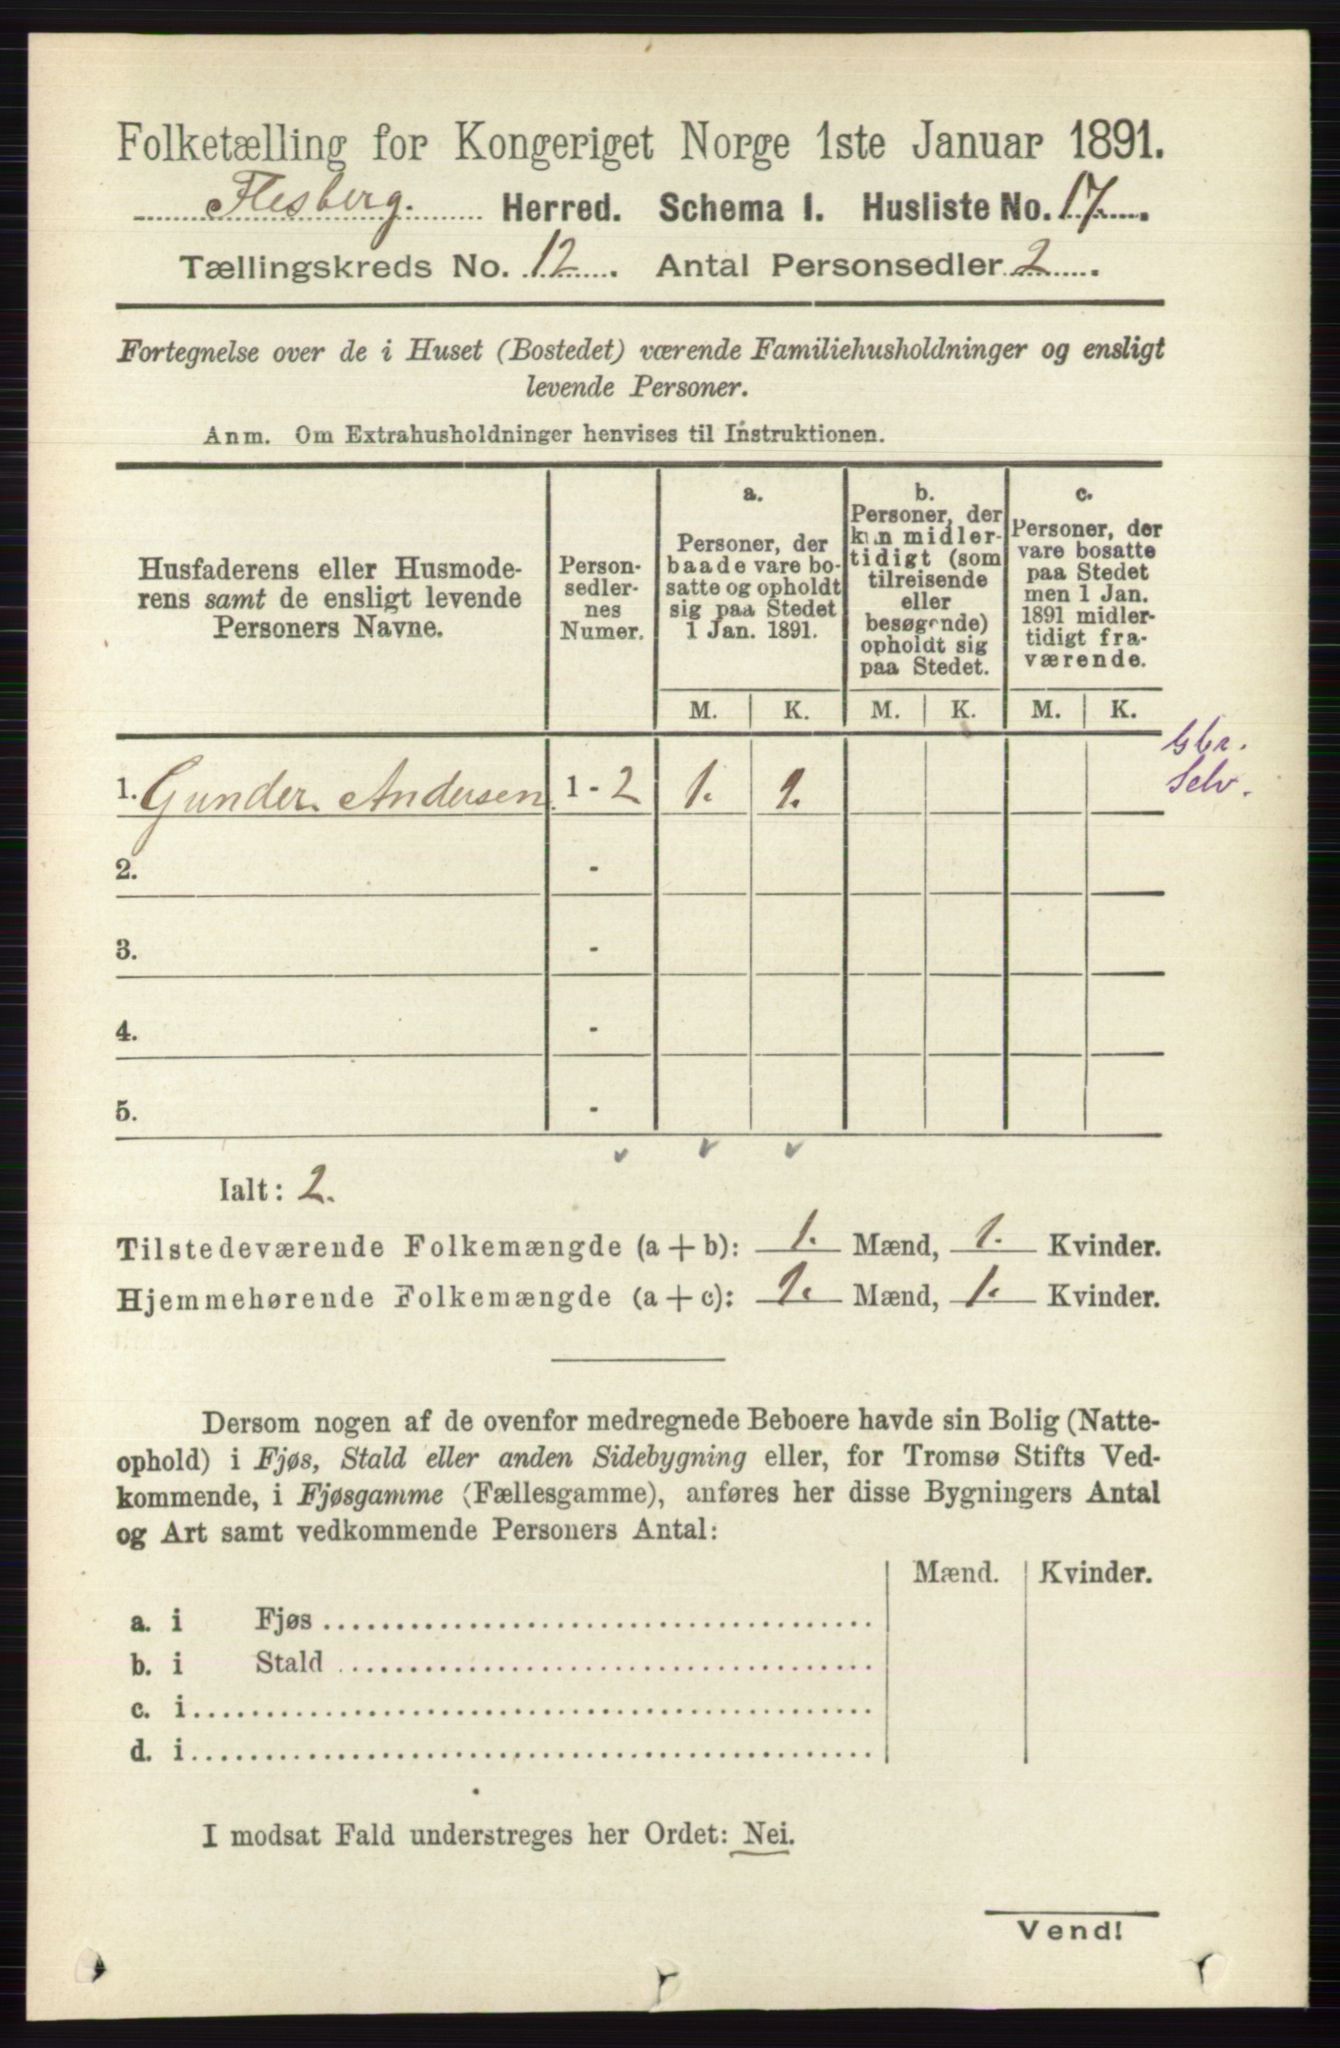 Folketælling for Kongeriget Norge 1ste Januar 1891.
Flesberg. Herred. Schema I. Husliste No. 17.
Tællingskreds No. 12. Antal Personsedler 2.
Fortegnelse over de i Huset (Bostedet) værende Familiehusholdninger og ensligt
levende Personer.
Anm. Om Extrahusholdninger henvises til Instruktionen.
Husfaderens eller Husmode-
rens samt de ensligt levende
Personers Navne.
Person-
sedler-
nes
Numer.
a.
Personer, der
baade vare bo-
satte og opholdt
sig paa Stedet
1 Jan. 1891.
b.
Personer, der
kun midler-
tidigt (som
tilreisende
eller
besøgende)
opholdt sig
paa Stedet.
c.
Personer, der
vare bosatte
paa Stedet
men 1 Jan.
1891 midler-
tidigt fra-
værende.
M. K. M. K. M. K.
Gbr.
Selv.
1. Gunder Andersen 1 - 2 1. 1.
2. -
3. -
4. -
5. -
Ialt: 2.
Tilstedeværende Folkemængde (a + b): 1. Mænd, 1. Kvinder.
Hjemmehørende Folkemængde (a + c): 1. Mænd, 1. Kvinder.
Dersom nogen af de ovenfor medregnede Beboere havde sin Bolig (Natte-
ophold) i Fjøs, Stald eller anden Sidebygning eller, for Tromsø Stifts Ved-
kommende, i Fjøsgamme (Fællesgamme), anføres her disse Bygningers Antal
og Art samt vedkommende Personers Antal:
Mænd. Kvinder.
a. i Fjøs
b. i Stald
c. i
d. i
I modsat Fald understreges her Ordet: Nei.
Vend!